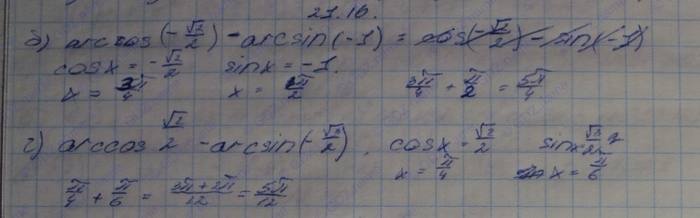 21.16.
б) arccos(-√2/2) - arcsin(-1) = cos(-√2/2) - sin(-1)
cosx = -√2/2 sinx = -1.
x = 3π/4 x = π/2 3π/4 + π/2 = 5π/4
г) arccos √2/2 - arcsin(-√3/2). cosx = √2/2 sinx
x = π/4 x = π/6
π/4 + π/6 = 3π+2π/12 = 5π/12